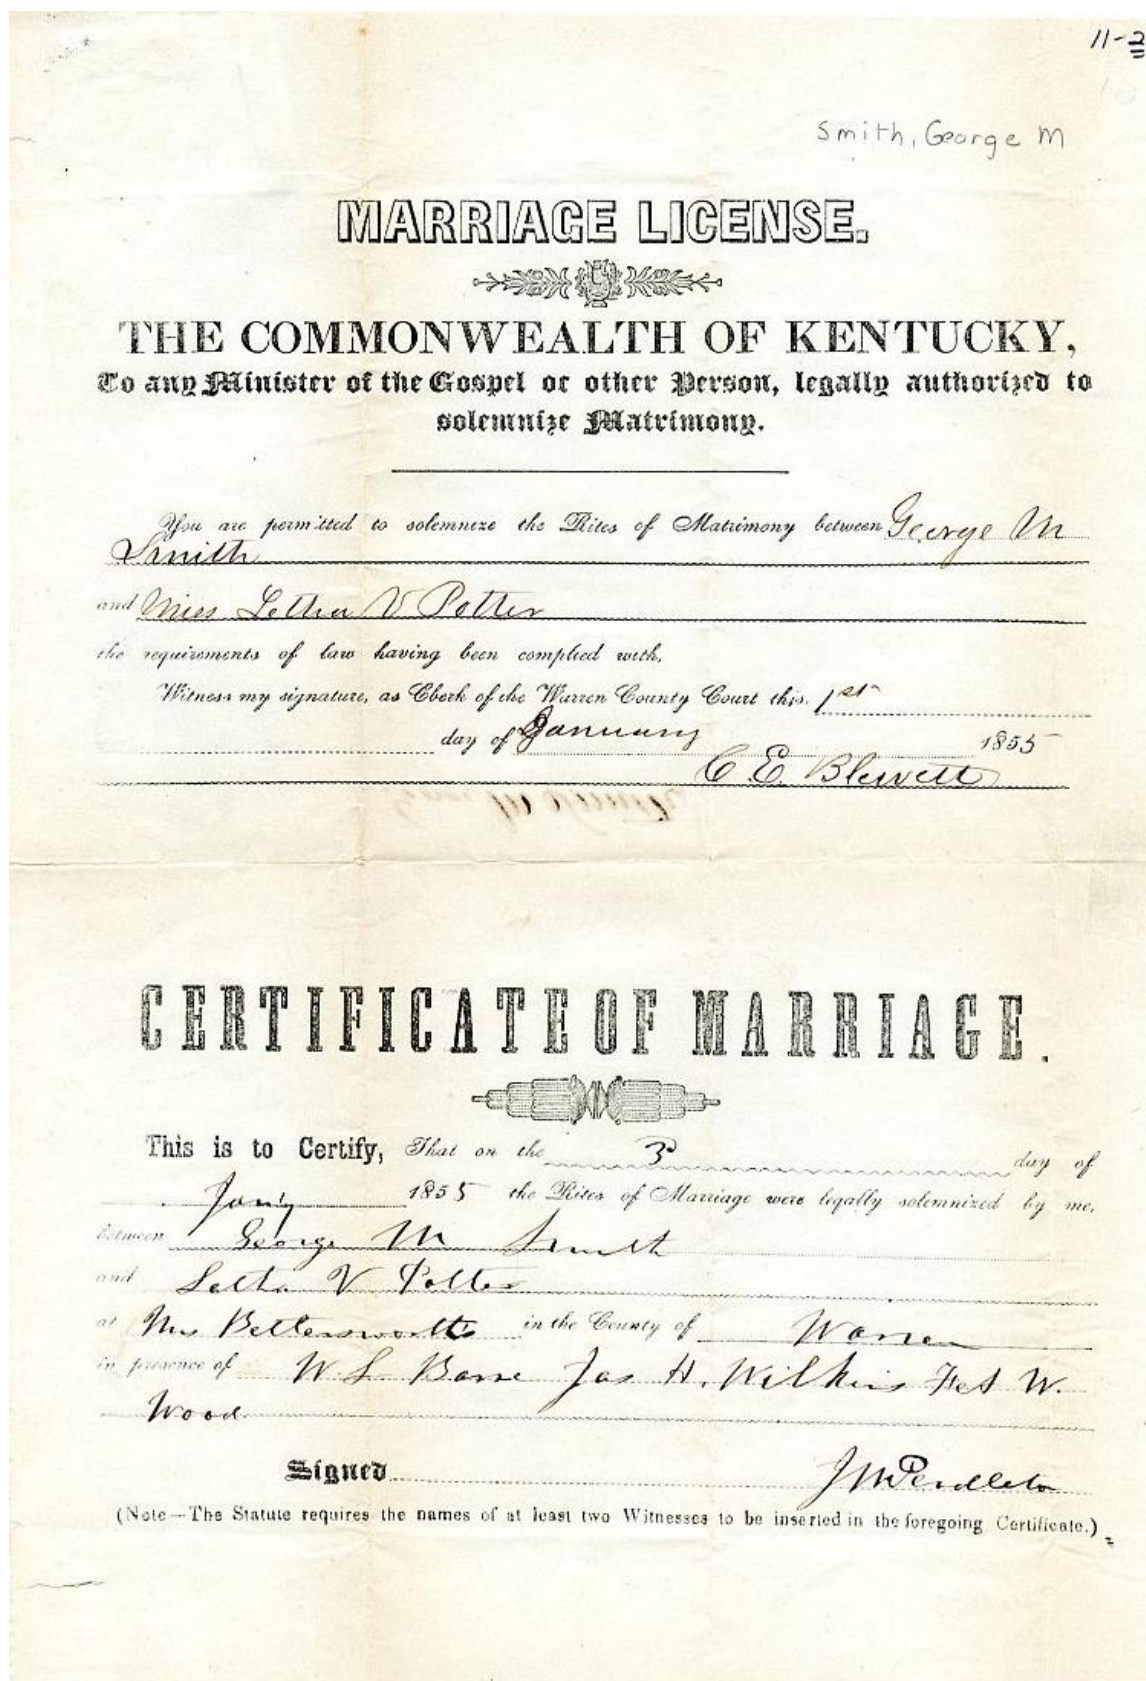 11-2
Smith, George M
MARRIAGE LICENSE.
THE COMMONWEALTH OF KENTUCKY,
To any Minister of the Gospel or other Person, legally authorized to
solemnize Matrimony.
You are permitted to solemnize the Rites of Matrimony between George M
Smith
and Miss Letha V Potter
the requirements of law having been complied with,
Witness my signature, as Clerk of the Warren County Court this 1st
day of January 1855
C. E. Blewett
CERTIFICATE OF MARRIAGE.
This is to Certify, That on the 3 day of
Jany 1855 the Rites of Marriage were legally solemnized by me,
between George M Smith
and Letha V Potter
at Mrs Bettersworths in the County of Warren
in presence of W. L. Barre Jas H. Wilkins W.
Wood
Signed J M Pendleton
(Note—The Statute requires the names of at least two Witnesses to be inserted in the foregoing Certificate.)